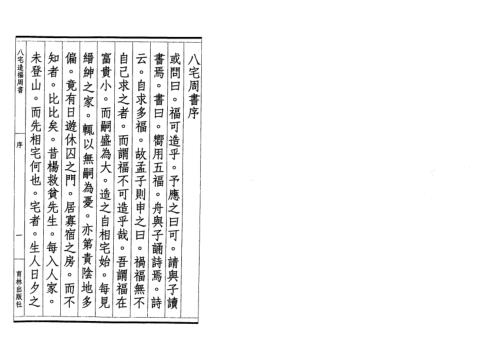 八宅周書序
或問曰。福可造乎。予應之曰可。請與子讀
書焉。書曰。嚮用五福。舟與子誦詩焉。詩
云。自求多福。故孟子則申之曰。禍福無不
自己求之者。而謂福不可造乎哉。吾謂福在
富貴小。而嗣盛為大。造之自相宅始。每見
縉紳之家。輒以無嗣為憂。亦第貴陰地多
偏。竟有日遊休囚之門。居寡宿之房。而不
知者。比比矣。昔楊救貧先生。每入人家。
未登山。而先相宅何也。宅者。生人日夕之
八宅造福周書
序
一
育林出版社